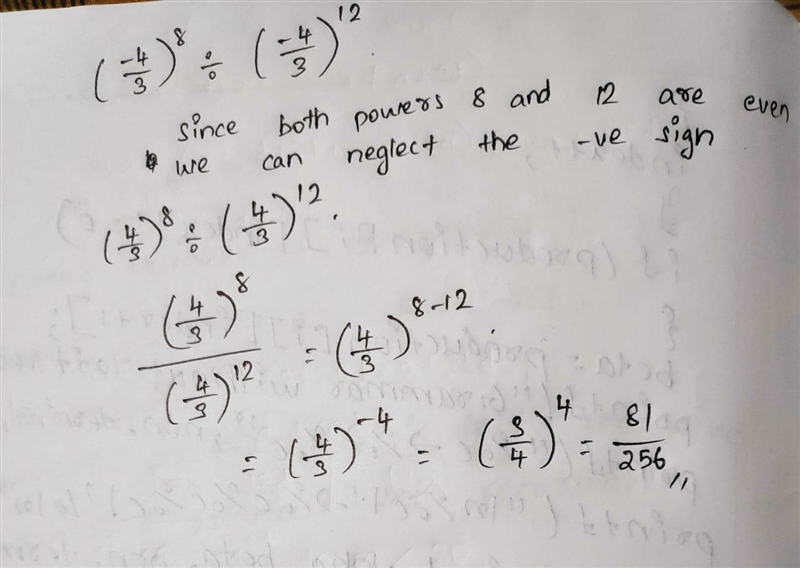 (-4/3)^8 ÷ (-4/3)^12.
since both powers 8 and 12 are even
we can neglect the -ve sign
(4/3)^8 ÷ (4/3)^12.
(4/3)^8 / (4/3)^12 = (4/3)^8-12.
= (4/3)^-4 = (3/4)^4 = 81/256 //